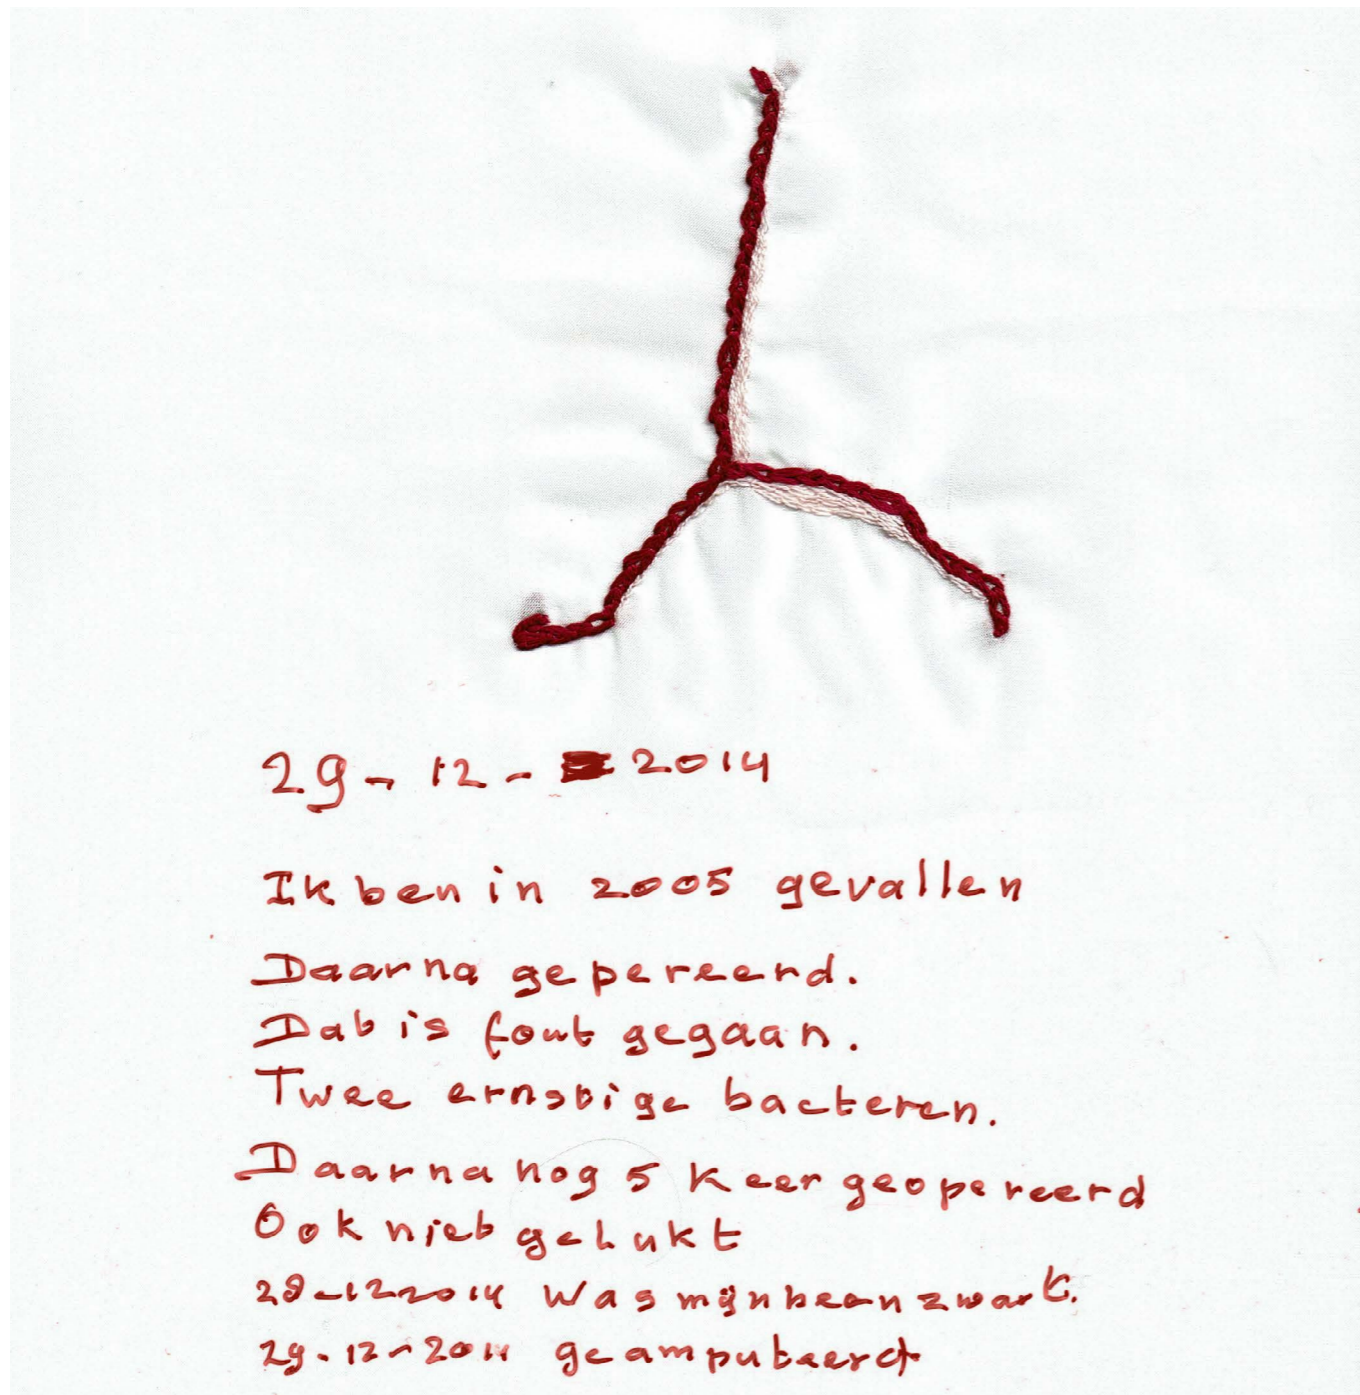 29-12-2014
Ik ben in 2005 gevallen
Daarna gepereerd.
Dat is fout gegaan.
Twee ernstige bacteren.
Daarna nog 5 keer geopereerd
Ook niet gelukt
28-12-2014 was mijn been zwart.
29-12-2014 geamputeerd